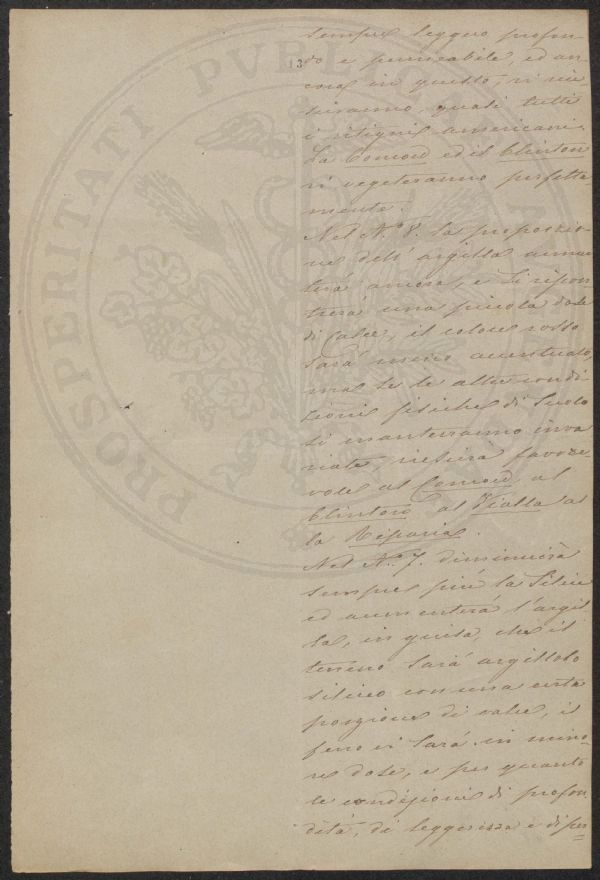 PROSPERITATI PVBLICAE AVGENDAE
13
sempre leggero profon-
do e permeabile, ed an-
cora in questo, vi riu
sciranno, quasi tutti
i vitigni americani.
La Concord ed il Clinton
vi vegeteranno perfetta
mente.
Nel N.º 8. la proporzio-
ne dell' argilla aumen
terà ancora, e si riscon
trerà una piccola dose
di Calce, il colore rosso
sarà meno accentuato,
ma se le altre condi-
zioni fisiche di suolo
si manterranno inva
riate, riescirà favore-
vole al Concord, al
Clinton al Vialla al
la Riparia.
Nel N.º 7. diminuirà
sempre più la Silice
ed aumenterà l'argil
la, in guisa, che il
terreno sarà argilloso
siliceo con una certa
porzione di calce, il
ferro vi sarà in mino-
re dose, e per quanto
le condizioni di profon
dità, di leggerezza e di per=